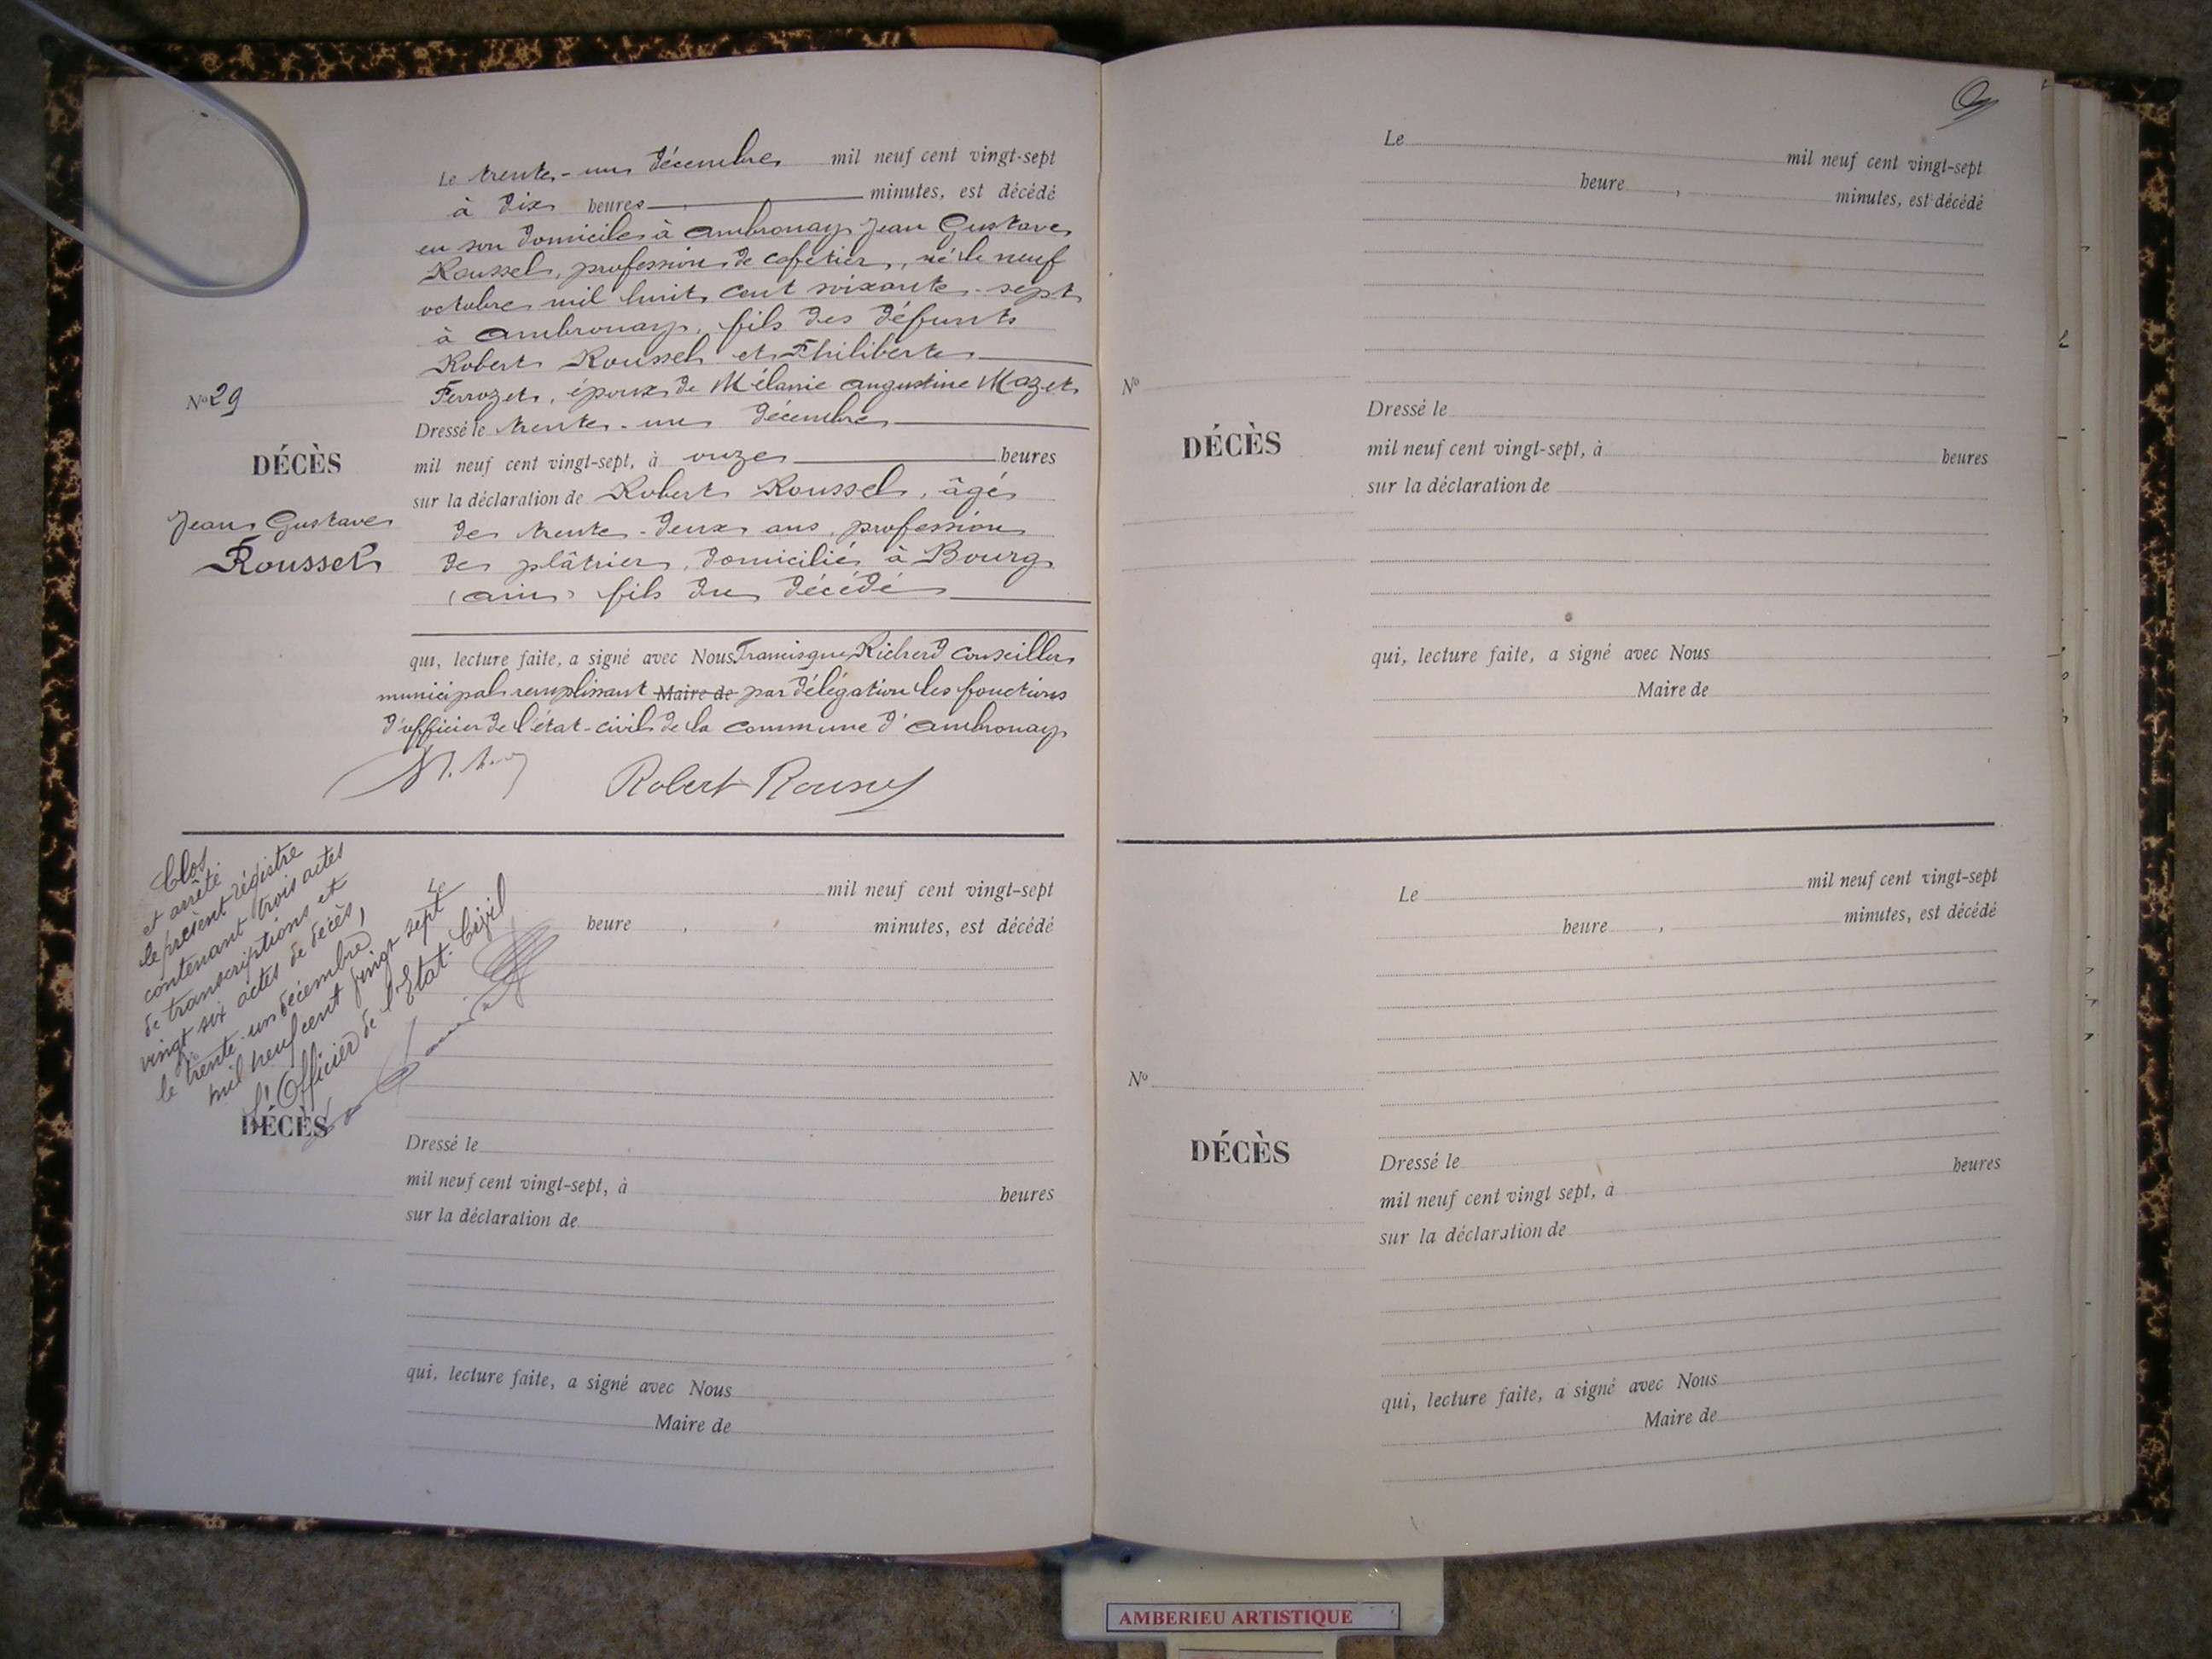 Le trente-un décembre mil neuf cent vingt-sept
à dix heures minutes, est décédé
en son domicile à Ambronay Jean Gustave
Roussel, profession de cafetier, né le neuf
octobre mil huit cent soixante-sept
à Ambronay, fils des défunts
Robert Roussel et Philiberte
Ferrozet, époux de Mélanie Augustine Mazet
Dressé le trente-un décembre
mil neuf cent vingt-sept, à onze heures
sur la déclaration de Robert Roussel, âgé
de trente-deux ans, profession
de plâtrier, domicilié à Bourg
(Ain) fils du décédé
qui, lecture faite, a signé avec Nous Francisque Richerd conseiller
municipal remplissant Maire de par délégation les fonctions
d'officier de l'état-civil de la commune d'Ambronay
Robert Roussel
No 29
DÉCÈS
Jean Gustave
Roussel
Clos
et arrêté
le présent régistre
contenant trois actes
de transcriptions et
vingt six actes de décès,
le trente-un décembre
mil neuf cent vingt sept
L'Officier de l'Etat-Civil
Le mil neuf cent vingt-sept
heure , minutes, est décédé
No
DÉCÈS
Dressé le
mil neuf cent vingt-sept, à heures
sur la déclaration de
qui, lecture faite, a signé avec Nous
Maire de
Le mil neuf cent vingt-sept
heure , minutes, est décédé
No
DÉCÈS
Dressé le
mil neuf cent vingt-sept, à heures
sur la déclaration de
qui, lecture faite, a signé avec Nous
Maire de
Le mil neuf cent vingt-sept
heure , minutes, est décédé
No
DÉCÈS
Dressé le
mil neuf cent vingt sept, à heures
sur la déclaration de
qui, lecture faite, a signé avec Nous
Maire de
AMBERIEU ARTISTIQUE